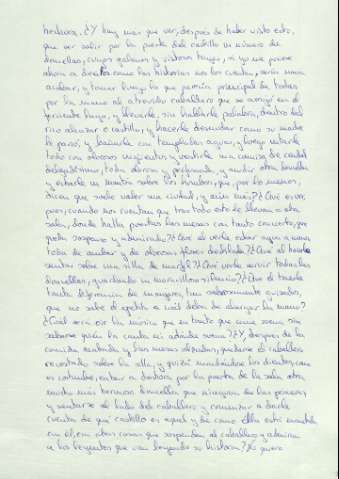 hechura. ¿Y hay mas que ver, después de haber visto esto,
que ver salir por la puerta del castillo un número de
doncellas, cuyos galanos y vistosos trajes, si yo me pusiese
ahora a decirlos como las historias nos los cuentan, sería nunca
acabar, y tomar luego la que parecía principal de todas
por la mano al atrevido caballero que se arrojó en el
ferviente lago, y llevarle, sin hablarle palabra, dentro del
rico alcázar o castillo, y hacerle desnudar como su madre
le parió, y bañarle con templadas aguas, y luego untarle
todo con olorosos ungüentos y vestirle una camisa de cendal
delgadísimo, toda olorosa y perfumada, y acudir otra doncella
y echarle un mantón sobre los hombros, que, por lo menos,
dicen que suele valer una ciudad, y aún más? ¿Qué es ver,
pues, cuando nos cuentan que tras todo esto le llevan a otra
sala, donde halla puestas las mesas con tanto concierto, que
queda suspenso y admirado? ¿Qué el verle echar agua a manos,
toda de ámbar y de olorosas flores destilada? ¿Qué el hacerle
sentar sobre una silla de marfil? ¿Qué verle servir todas las
doncellas, guardando un maravilloso silencio? ¿Qué el traerle
tanta diferencia de manjares, tan sabrosamente guisados,
que no sabe el apetito a cuál deba de alargar la mano?
¿Cuál será oír la música que en tanto que come suena, sin
saberse quién la canta ni adónde suena? ¿Y, después de la
comida acabada y las mesas alzadas, quedarse el caballero
recostado sobre la silla, y quizá mondándose los dientes, como
es costumbre, entrar a deshora por la puerta de la sala otra
mucho más hermosa doncella que ninguna de las primeras
y sentarse al lado del caballero y comenzar a darle
cuenta de qué castillo es aquel y de como ella está encantada
en él, con otras cosas que suspenden al caballero y admiran
a los leyentes que van leyendo su historia? No quiero